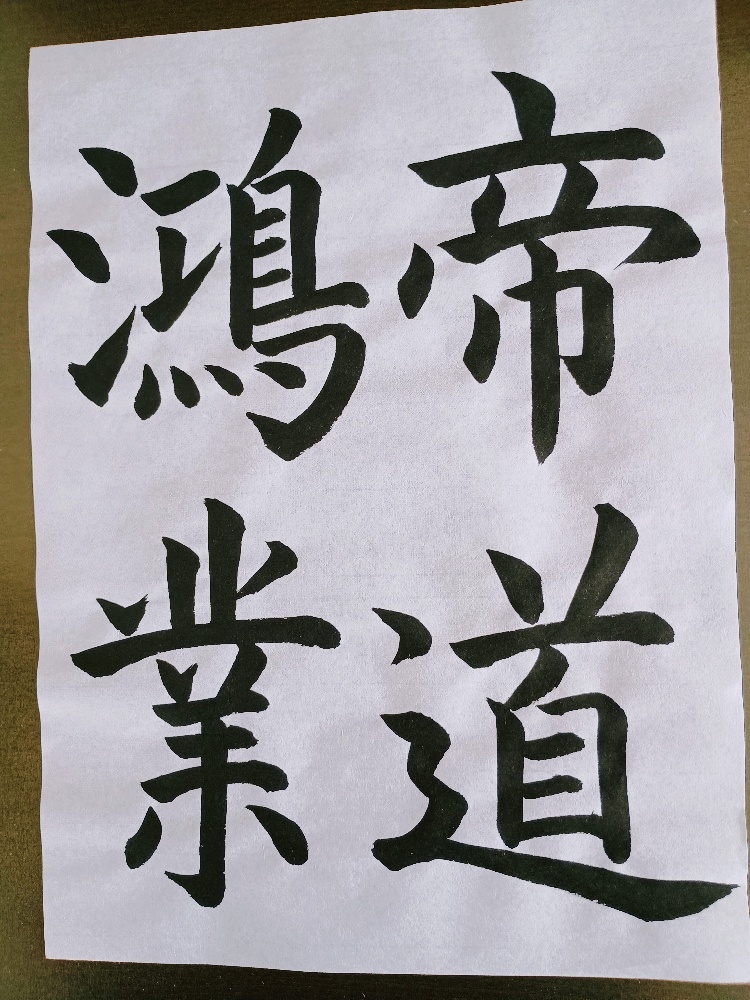 帝道
鴻業